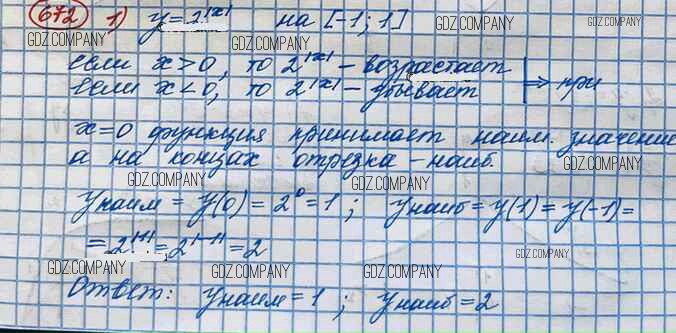 672 1) y=2^|x| на [-1; 1]
GDZ.COMPANY GDZ.COMPANY GDZ.COMPANY GDZ.COMPANY
если x>0, то 2^|x| - возрастает
если x<0, то 2^|x| - убывает ⇒ при
GDZ.COMPANY GDZ.COMPANY GDZ.COMPANY
x=0 функция принимает наим. значение
а на концах отрезка - наиб.
GDZ.COMPANY GDZ.COMPANY GDZ.COMPANY GDZ.COMPANY
y наим = y(0) = 2^0 = 1 ; y наиб = y(1) = y(-1) =
GDZ.COMPANY GDZ.COMPANY GDZ.COMPANY
= 2^|1| = 2^|-1| = 2
GDZ.COMPANY GDZ.COMPANY GDZ.COMPANY GDZ.COMPANY
Ответ: y наим = 1 ; y наиб = 2